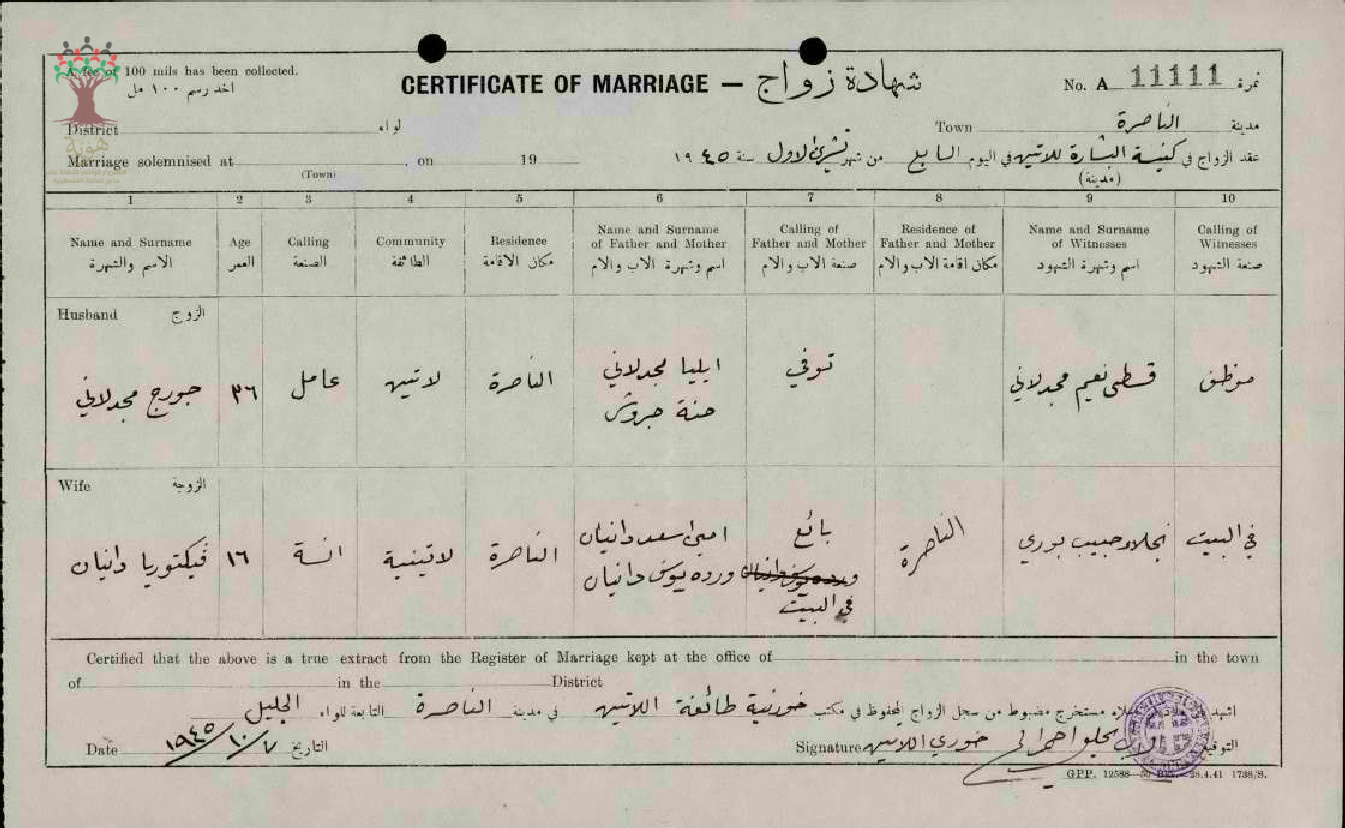 A fee of 100 mils has been collected.
اخذ رسم ١٠٠ مل
CERTIFICATE OF MARRIAGE — شهادة زواج
No. A 11111 نمرة
District لواء
Town الناصرة مدينة
هوية
Marriage solemnised at , on 19
(Town)
عقد الزواج في كنيسة البشارة للاتين في اليوم السابع من شهر تشرين الاول سنة ١٩٤٥
(مدينة)
1 2 3 4 5 6 7 8 9 10
Name and Surname
الاسم والشهرة
Age
العمر
Calling
الصنعة
Community
الطائفة
Residence
مكان الاقامة
Name and Surname
of Father and Mother
اسم وشهرة الاب والام
Calling of
Father and Mother
صنعة الاب والام
Residence of
Father and Mother
مكان اقامة الاب والام
Name and Surname
of Witnesses
اسم وشهرة الشهود
Calling of
Witnesses
صنعة الشهود
Husband الزوج
جورج مجدلاني
٣٦
عامل
لاتين
الناصرة
ايليا مجدلاني
حنة
توفي
قسطي نعيم مجدلاني
موظف
Wife الزوجة
فيكتوريا دانيان
١٦
انسة
لاتينية
الناصرة
اسعد دانيان
ورده يوسف دانيان
بائع
ورده يوسف دانيان
في البيت
الناصرة
نجلاء حبيب بوري
في البيت
Certified that the above is a true extract from the Register of Marriage kept at the office of in the town
of in the District
اشهد ان هذه مستخرج مضبوط من سجل الزواج المحفوظ في مكتب خورنية طائفة اللاتين في مدينة الناصرة التابعة للواء الجليل
Date ١٩٤٥/١٠/٧ التاريخ
Signature خوري اللاتين التوقيع
GPP. 12588—50 Bks.—28.4.41 1738/S.